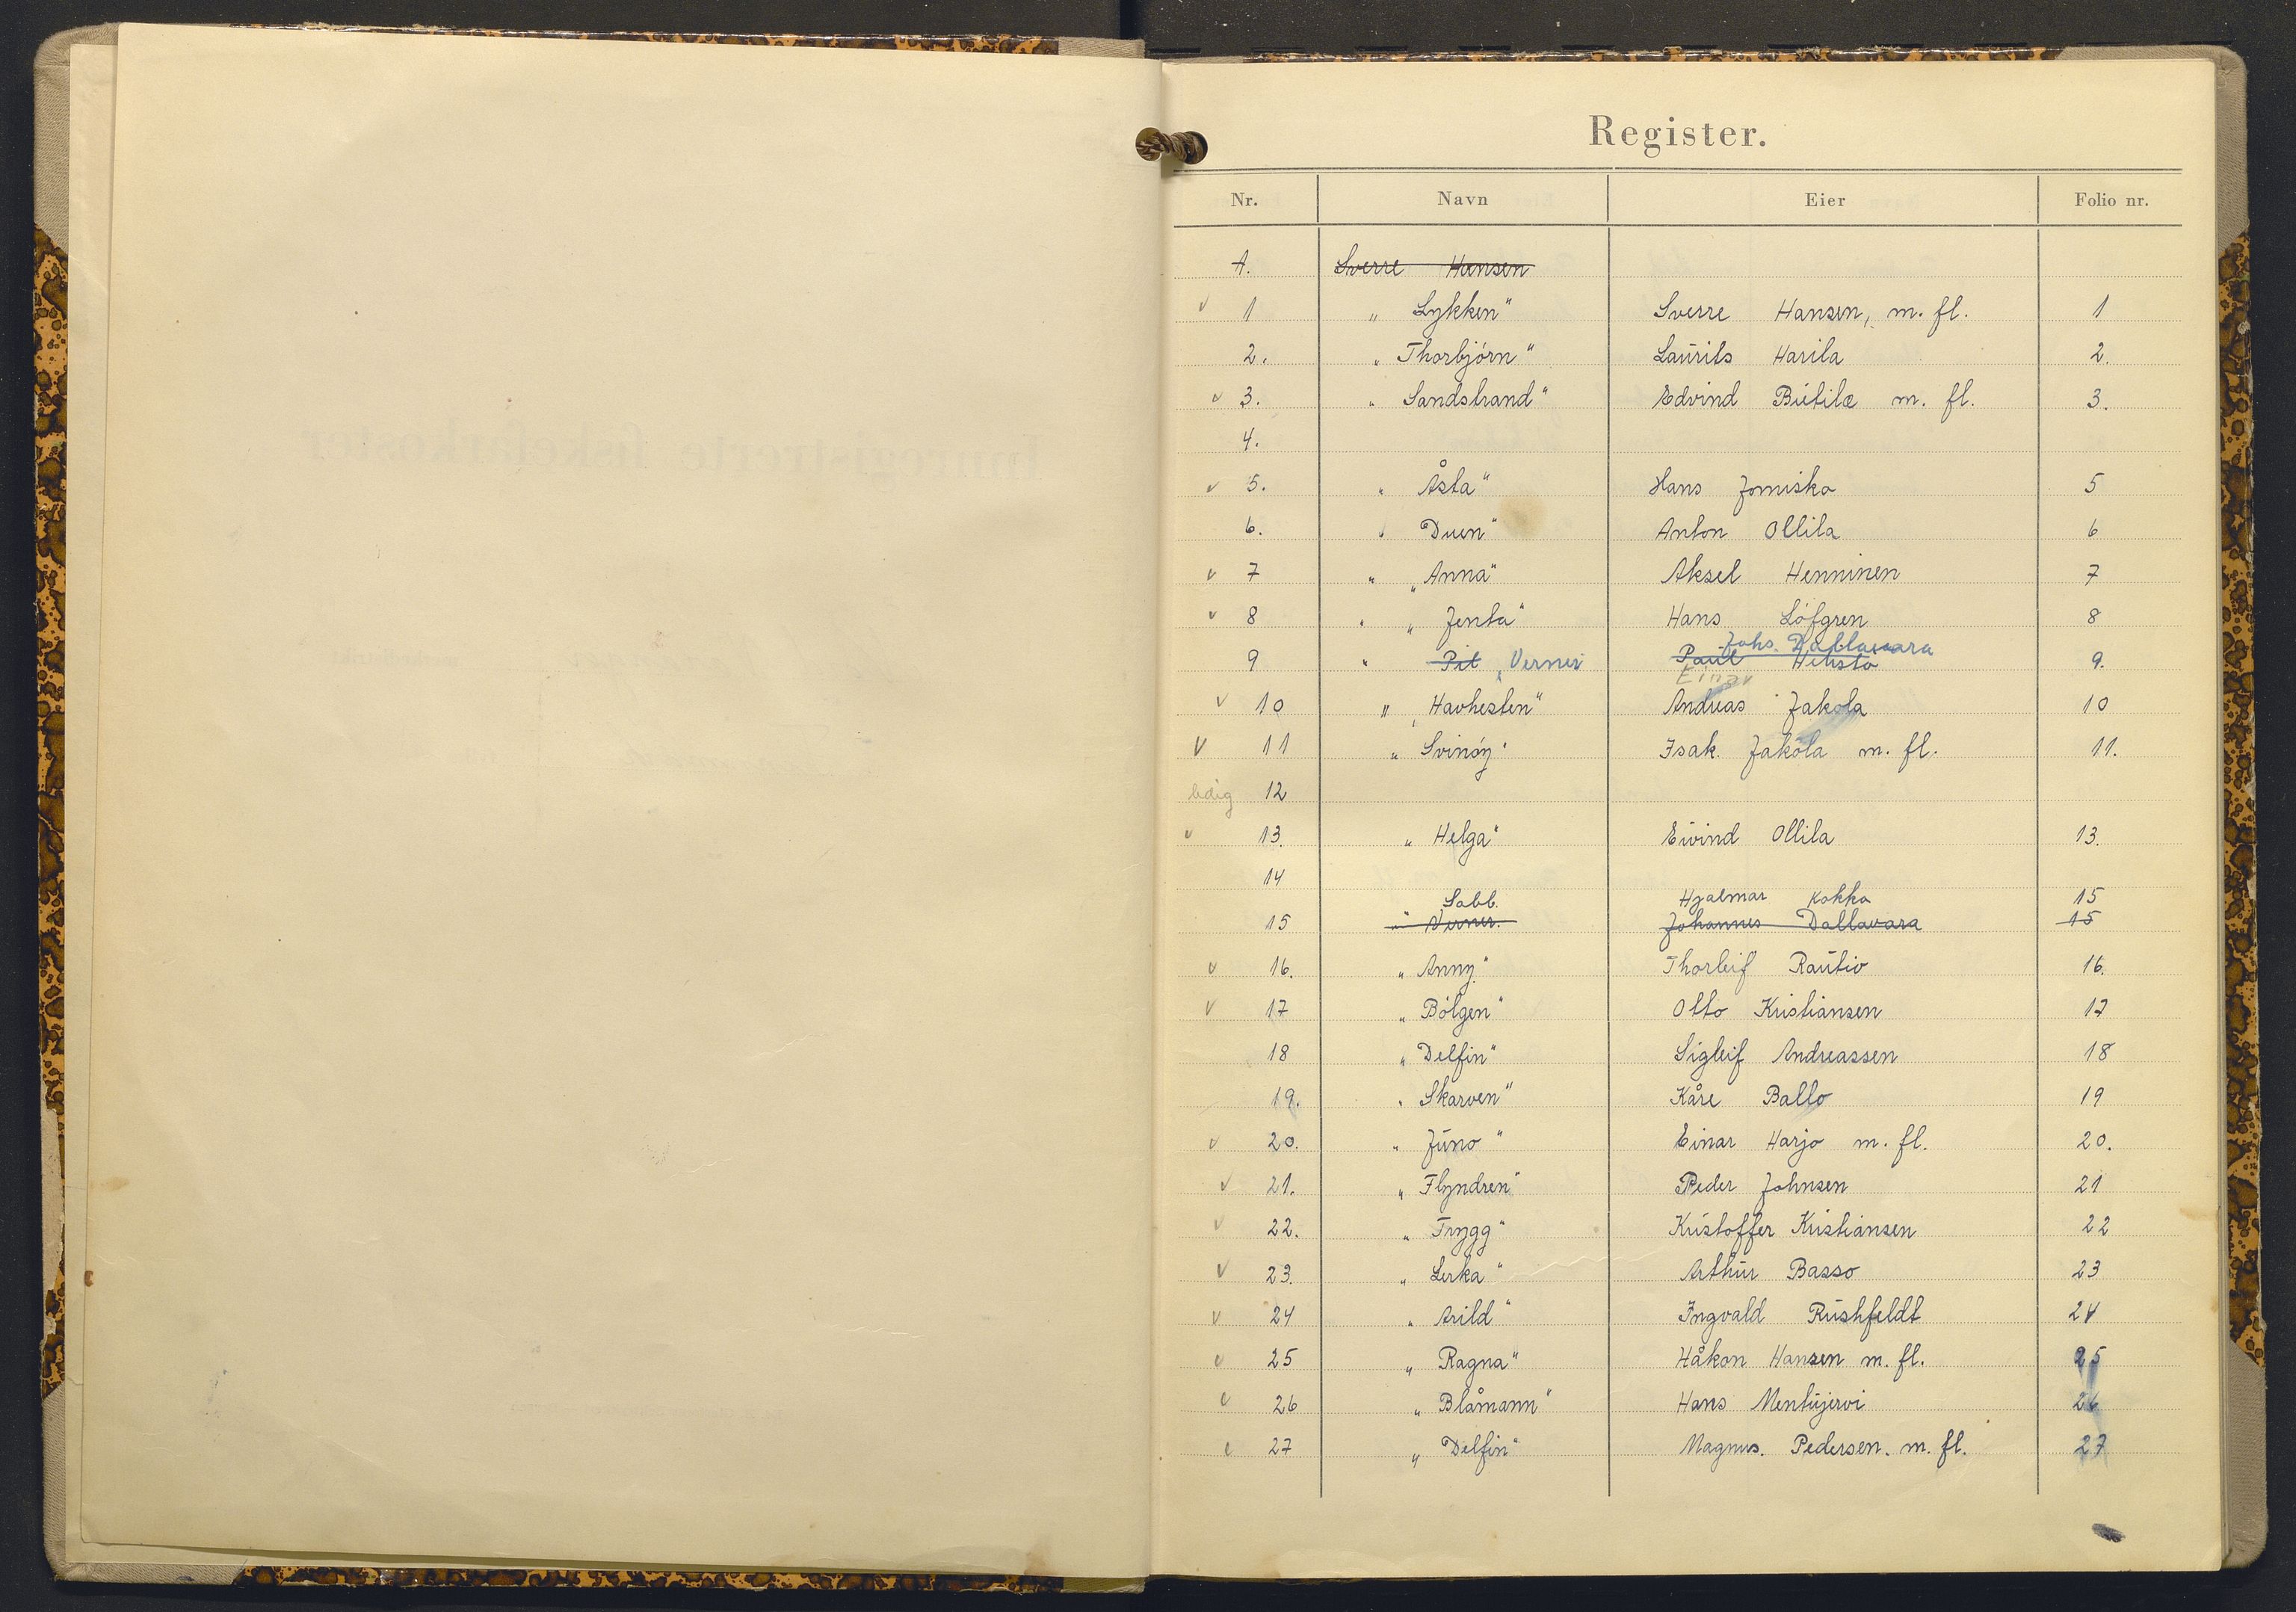 Register.
Nr. Navn Eier Folio nr.
1. Sverre Hansen
v 1 „ Lykken" Sverre Hansen, m. fl. 1
2. „ Thorbjörn" Laurits Harila 2.
v 3. „ Sandstrand" Edvind Butilæ m. fl. 3.
4.
v 5. „ Åsta" Hans Jomisko 5
6. „ Duen" Anton Ollila 6
v 7 " „Anna" Aksel Henninen 7
v 8 " „Jenta" Hans Löfgren 8
Johs. Dallavara
9 " Pil „Verner Paul 9.
Einar
v 10 " „Havhesten" Andreas Jakola 10
v 11 „ Svinöy" Isak Jakola m. fl. 11.
ledig 12
v 13. „ Helga" Eivind Ollila 13.
14
Sabb. Hjalmar Kokko 15
15 „ Verner. Johannes Dallavara 15
v 16. „ Anny" Thorleif Rautio 16.
v 17 „ Bölgen" Otto Kristiansen 17
18 „ Delfin" Sigleif Andreassen 18
19. „ Skarven" Kåre Ballo 19
v 20. „ Juno " Einar Harjo m. fl. 20.
v 21. „ Flyndren" Peder Johnsen 21
v 22. „ Trygg" Kristoffer Kristiansen 22
v 23. „ Lerka" Arthur Basso 23
v 24 „ Arild" Ingvald Rushfeldt 24
v 25 „ Ragna" Håkon Hansen m. fl. 25
v 26 „ Blåmann" Hans Mentyjervi 26
v 27 „ Delfin" Magnus. Pedersen. m. fl. 27